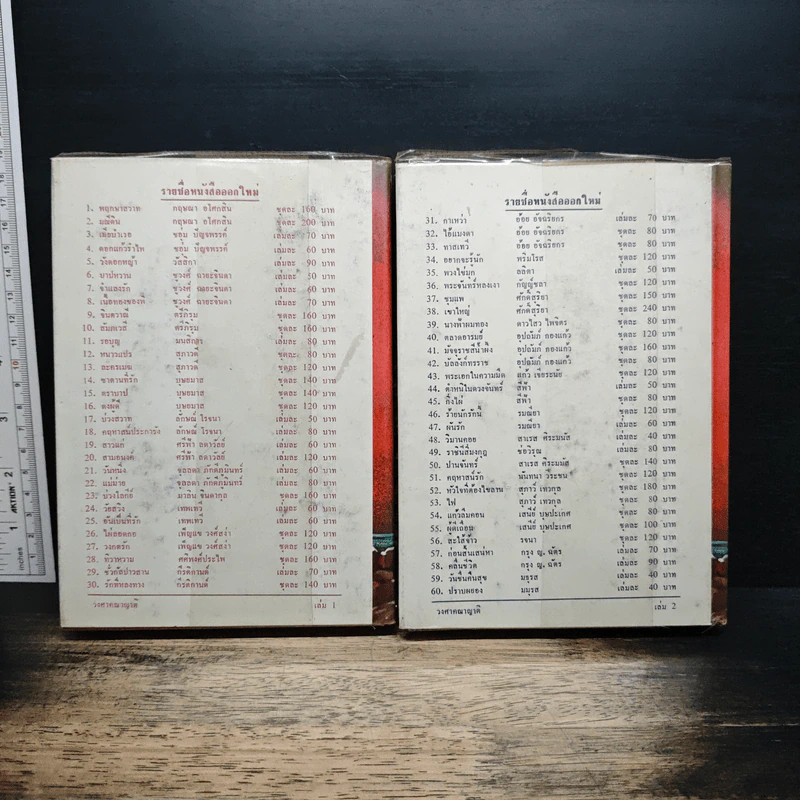 รายชื่อหนังสือออกใหม่
1. พฤกษาสวาท กฤษณา อโศกสิน ชุดละ 160 บาท
2. มณีดิน กฤษณา อโศกสิน ชุดละ 200 บาท
3. เมียบำเรอ ชอุ่ม ปัญจพรรค์ เล่มละ 70 บาท
4. ดอกแก้วร่ำไห้ ชอุ่ม ปัญจพรรค์ เล่มละ 60 บาท
5. วังดอกหญ้า วัสสิกา เล่มละ 90 บาท
6. บาปหวาน ชูวงศ์ ฉายะจินดา เล่มละ 50 บาท
7. จำเลยรัก ชูวงศ์ ฉายะจินดา เล่มละ 60 บาท
8. เนื้อทองของพี่ ชูวงศ์ ฉายะจินดา เล่มละ 70 บาท
9. จินตวาณี ตรีภิรุม ชุดละ 160 บาท
10. สัมภเวสี ตรีภิรุม ชุดละ 160 บาท
11. รอบบู มนสิกุล เล่มละ 80 บาท
12. หนาวแปร สุภาวดี ชุดละ 120 บาท
13. ละครเมฆ สุภาวดี ชุดละ 120 บาท
14. ซาตานที่รัก บุษยมาส ชุดละ 140 บาท
15. ตราบาป บุษยมาส ชุดละ 140 บาท
16. ดงผู้ดี บุษยมาส ชุดละ 120 บาท
17. บ่วงสวาท ลักษณ์ โรจนา เล่มละ 50 บาท
18. คฤหาสน์ปะการัง ลักษณ์ โรจนา เล่มละ 80 บาท
19. สาวแก่ ศรีฟ้า ลดาวัลย์ เล่มละ 60 บาท
20. สามอนงค์ ศรีฟ้า ลดาวัลย์ ชุดละ 120 บาท
21. วันหนึ่ง จุลลดา ภักดีภูมินทร์ เล่มละ 60 บาท
22. แม่ม่าย จุลลดา ภักดีภูมินทร์ เล่มละ 80 บาท
23. บ่วงโลกีย์ มาลัย จินดากุล ชุดละ 160 บาท
24. รอยลวง เทพเทวี เล่มละ 60 บาท
25. ฉันเป็นที่รัก เทพเทวี เล่มละ 60 บาท
26. ไผ่ยอดกอ เพ็ญแข วงศ์สง่า ชุดละ 120 บาท
27. วงกตรัก เพ็ญแข วงศ์สง่า ชุดละ 120 บาท
28. ทิวาหวาม ศศิพงศ์ประไพ ชุดละ 160 บาท
29. ชั่วคืนข้าวสาน กีรติกานต์ เล่มละ 70 บาท
30. รักที่หลงทาง กีรติกานต์ ชุดละ 140 บาท
วงศาคณาญาติ เล่ม 1
รายชื่อหนังสือออกใหม่
31. กาเหว่า อ้อย อัจฉริยกร เล่มละ 70 บาท
32. ไอ้แมงดา อ้อย อัจฉริยกร ชุดละ 80 บาท
33. ทาสเทวี อ้อย อัจฉริยกร ชุดละ 80 บาท
34. อยากจะรู้นัก พริมโรส ชุดละ 120 บาท
35. พวงไข่มุก ลลิตา เล่มละ 50 บาท
36. พระจันทร์หลงเงา กัญญ์ชลา ชุดละ 120 บาท
37. ชุมแพ ศักดิ์สุริยา ชุดละ 150 บาท
38. เขาใหญ่ ศักดิ์สุริยา ชุดละ 240 บาท
39. นางฟ้าผมทอง ดาวไสว ไพจิตร ชุดละ 80 บาท
40. ตลาดอารมย์ อุปถัมภ์ กองแก้ว ชุดละ 120 บาท
41. มัจจุราชสีน้ำผึ้ง อุปถัมภ์ กองแก้ว ชุดละ 160 บาท
42. บัลลังก์ทรราช อุปถัมภ์ กองแก้ว ชุดละ 80 บาท
43. พระเอกในความมืด แก้ว เจียระนัย ชุดละ 120 บาท
44. ตำหนิในดวงจันทร์ สีฟ้า เล่มละ 50 บาท
45. กิ่งไผ่ สีฟ้า ชุดละ 80 บาท
46. ร้ายนักรักนี้ รมณียา ชุดละ 120 บาท
47. ผันรัก รมณียา เล่มละ 60 บาท
48. วิมานคอย สาเรส ศิระมนัส เล่มละ 40 บาท
49. ราชินีลืมมงกุฎ ช่อวิรุณ เล่มละ 80 บาท
50. ปานจันทร์ สาเรส ศิระมนัส ชุดละ 140 บาท
51. คฤหาสน์รัก นันทนา วีระชน ชุดละ 120 บาท
52. หัวใจที่ต้องไขลาน สุภาว์ เทวกุล ชุดละ 180 บาท
53. ไฟ สุภาว์ เทวกุล ชุดละ 80 บาท
54. แก้วลืมคอน เสนีย์ บุษปะเกศ ชุดละ 80 บาท
55. ผู้ดีเถื่อน เสนีย์ บุษปะเกศ ชุดละ 100 บาท
56. สะใภ้จ้าว รจนา ชุดละ 120 บาท
57. ก่อนสิ้นเสน่หา กรุง ญ. ฉัตร เล่มละ 70 บาท
58. คลื่นชีวิต กรุง ญ. ฉัตร เล่มละ 90 บาท
59. วันชื่นคืนสุข มธุรส เล่มละ 40 บาท
60. ปราบพยอง มธุรส เล่มละ 40 บาท
วงศาคณาญาติ เล่ม 2